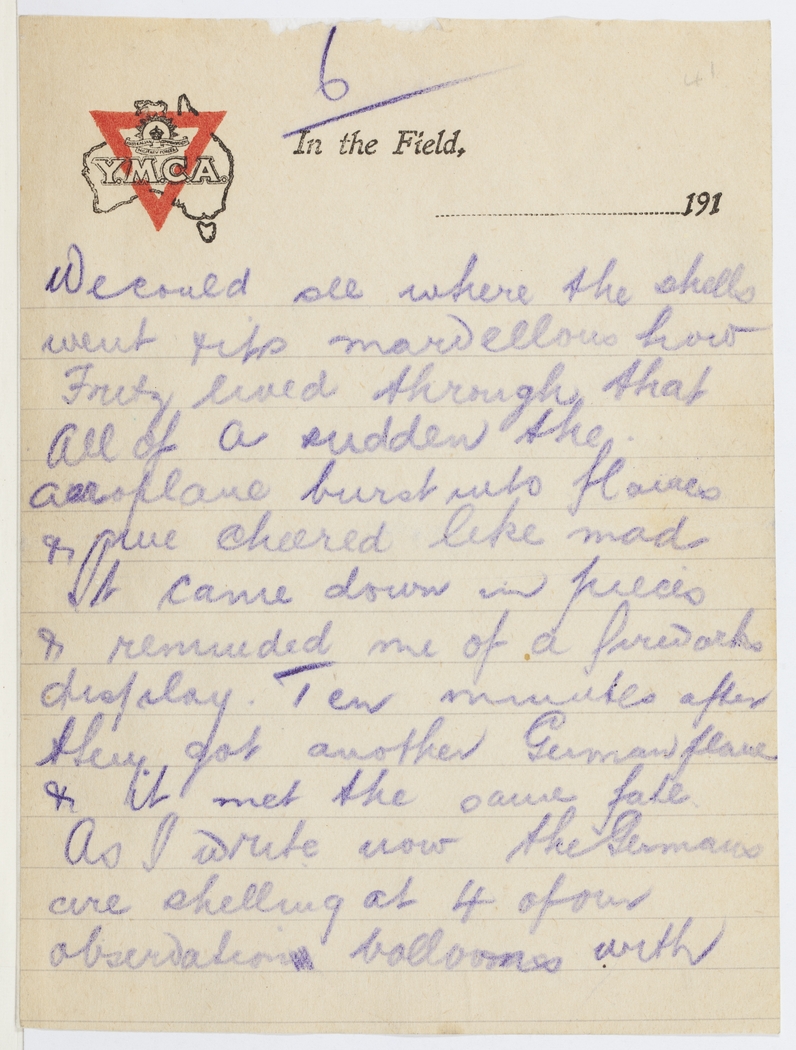 6
41
Y.M.C.A.
In the Field,
191
We could see where the shells
went & its marvellous how
Fritz lived through that
All of a sudden the
aeroplane burst into flames
& we cheered like mad
It came down in pieces
& reminded me of a fireworks
display. Ten minutes after
they got another German plane
& it met the same fate
As I write now the Germans
are shelling at 4 of our
observation balloones with